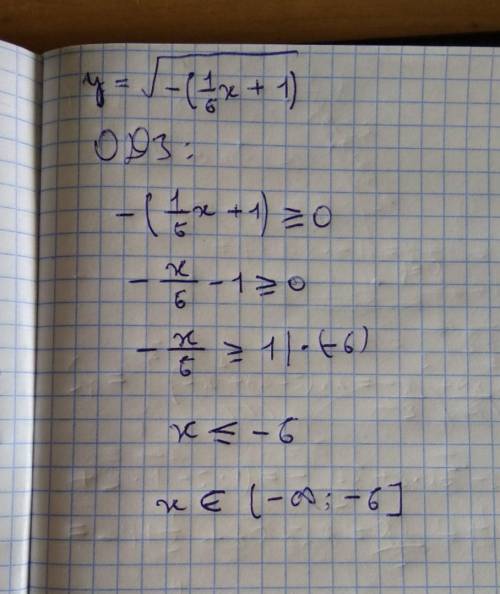 y = √(-(1/6x + 1))
ОДЗ:
-(1/6x + 1) ≥ 0
- x/6 - 1 ≥ 0
- x/6 ≥ 1 | · (-6)
x ≤ -6
x ∈ (-∞; -6]